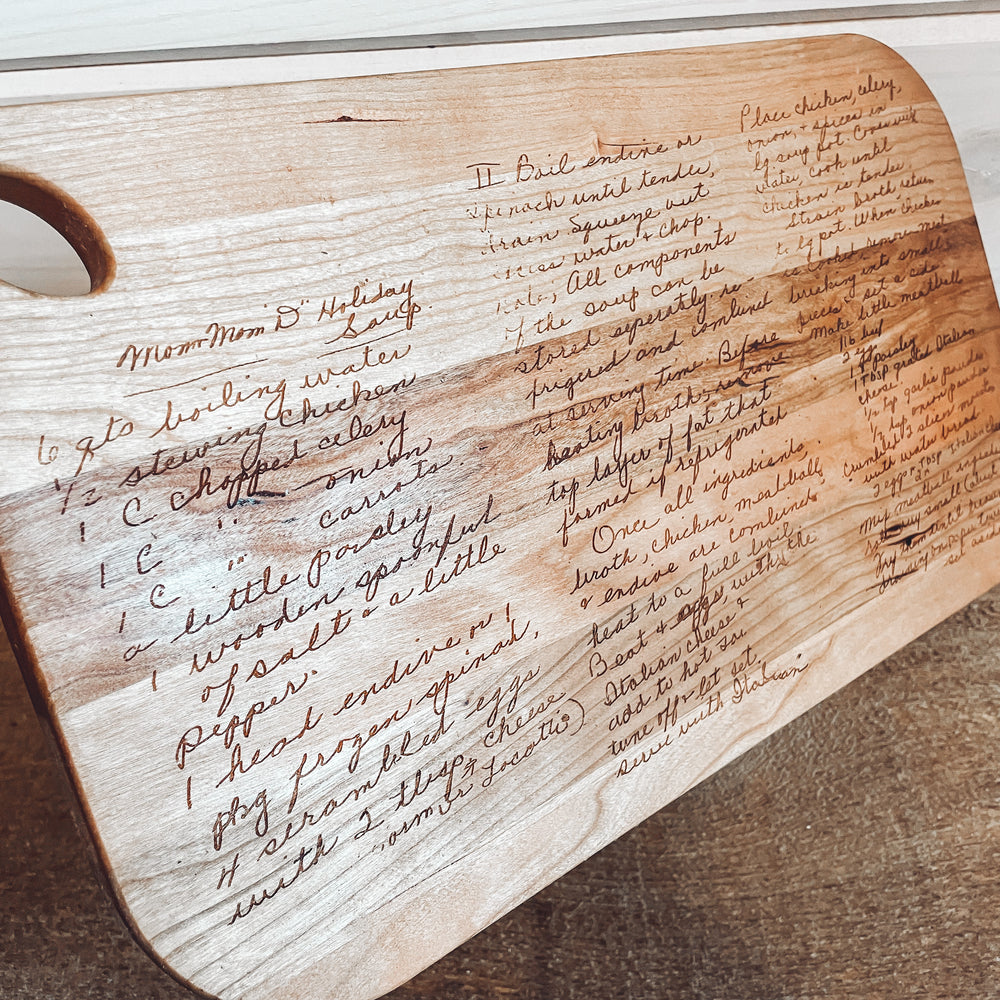 Mom-Mom "D" Holiday
Soup
6 qts boiling water
1/2 stewing chicken
1 C chopped celery
1 C " onion
1 C " carrots
a little parsley
1 wooden spoonful
of salt & a little
pepper.
1 head endive or 1
pkg frozen spinach,
4 scrambled eggs
with 2 tbsp cheese
II Boil endive or
spinach until tender,
drain squeeze out
excess water & chop.
Note; All components
of the soup can be
stored seperately re-
frigered and combined
at serving time. Before
heating broth, remove
top layer of fat that
formed if refrigerated
Once all ingredients,
broth, chicken, meatballs
& endive are combined
heat to a full boil.
Beat 4 eggs, with the
Italian cheese &
add to hot soup
turn off & let set.
serve with Italian
Place chicken, celery,
onion, & spices in
lg. soup pot. Cover with
water, cook until
chicken is tender.
Strain broth, return
to lg pot. When chicken
is cooked, remove meat
breaking into small
pieces & set aside
Make little meatballs
1 lb beef
2 eggs
1 T parsley
1 Tbsp grated Italian
cheese
1/2 tsp garlic powder
1/2 tsp onion powder
Crumble 2 slices moisten
with water bread
Mix meatball
set aside